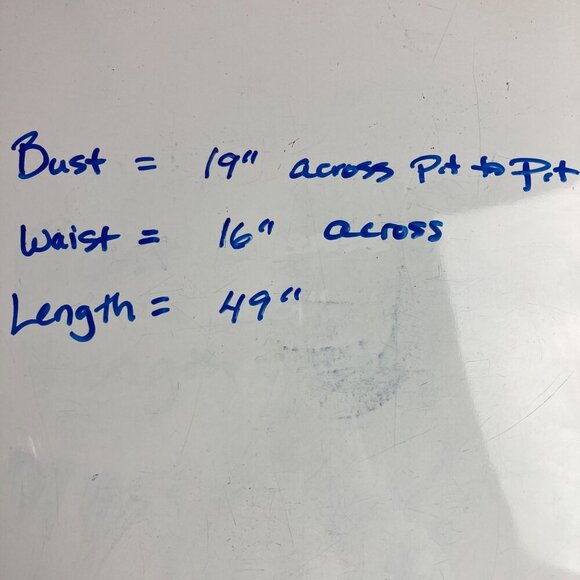 Bust = 19" across Pit to Pit
Waist = 16" across
Length = 49"